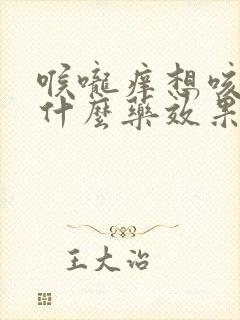 喉嚨痒想咳
什麼藥效果
王大治